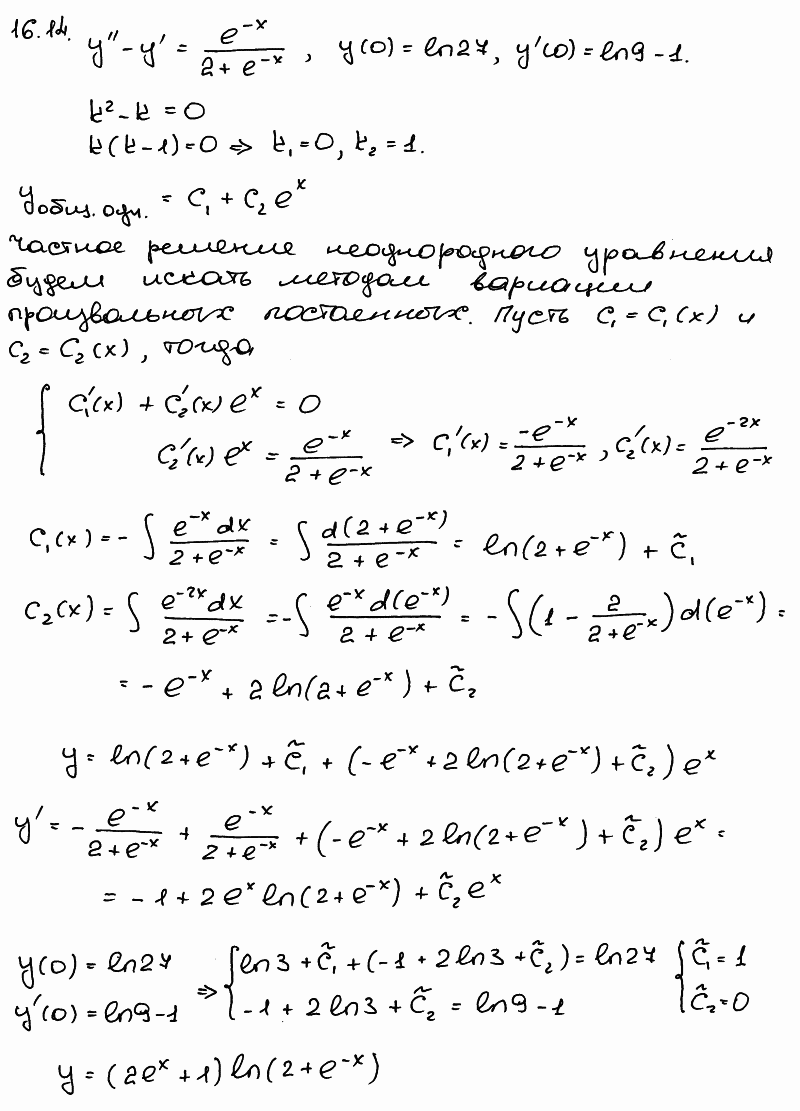 16.14. y'' - y' = e^{-x}/(2 + e^{-x}), y(0) = ln27, y'(0) = ln9 - 1.
k² - k = 0
k(k - 1) = 0 => k₁ = 0, k₂ = 1.
y общ. одн. = C₁ + C₂e^x
Частное решение неоднородного уравнения
будем искать методом вариации
произвольных постоенных. Пусть C₁ = C₁(x) и
C₂ = C₂(x), тогда
{ C₁'(x) + C₂'(x)e^x = 0
C₂'(x)e^x = e^{-x}/(2 + e^{-x}) => C₁'(x) = -e^{-x}/(2 + e^{-x}), C₂'(x) = e^{-2x}/(2 + e^{-x})
C₁(x) = -∫ e^{-x}dx/(2 + e^{-x}) = ∫ d(2 + e^{-x})/(2 + e^{-x}) = ln(2 + e^{-x}) + C̃₁
C₂(x) = ∫ e^{-2x}dx/(2 + e^{-x}) = -∫ e^{-x}d(e^{-x})/(2 + e^{-x}) = -∫(1 - 2/(2 + e^{-x}))d(e^{-x}) =
= -e^{-x} + 2ln(2 + e^{-x}) + C̃₂
y = ln(2 + e^{-x}) + C̃₁ + (-e^{-x} + 2ln(2 + e^{-x}) + C̃₂)e^x
y' = -e^{-x}/(2 + e^{-x}) + e^{-x}/(2 + e^{-x}) + (-e^{-x} + 2ln(2 + e^{-x}) + C̃₂)e^x =
= -1 + 2e^x ln(2 + e^{-x}) + C̃₂e^x
y(0) = ln27 => { ln3 + C̃₁ + (-1 + 2ln3 + C̃₂) = ln27 { C̃₁ = 1
y'(0) = ln9 - 1 -1 + 2ln3 + C̃₂ = ln9 - 1 C̃₂ = 0
y = (2e^x + 1)ln(2 + e^{-x})